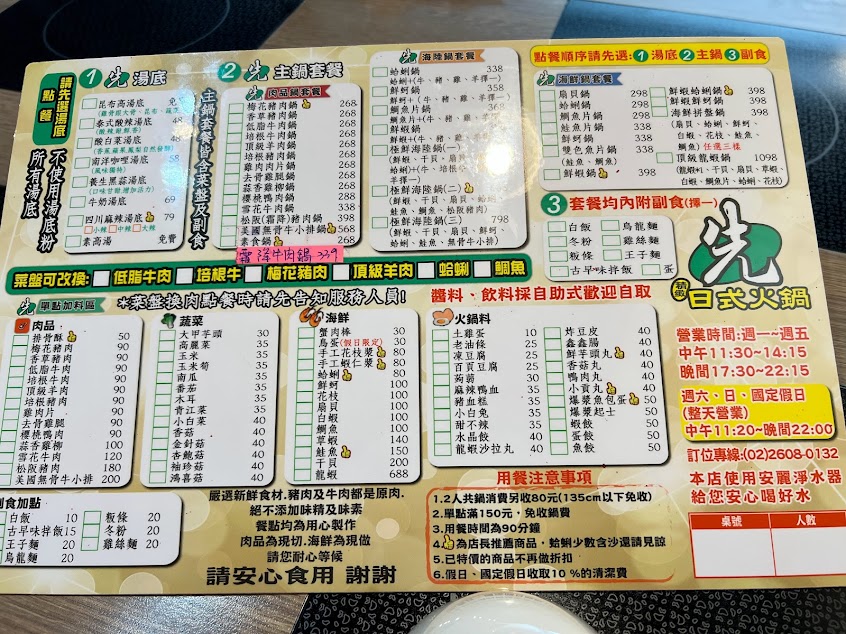 請先選湯底
點餐
不使用湯底粉
所有湯底
1 先 湯底
昆布高湯底 免
泰式酸辣湯底 48
(酸辣鮮鮮香)
酸白菜湯底 48
南洋咖哩湯底 58
(風味獨特)
養生黑蒜湯底
(口味甘甜.增加活力)
牛奶湯底 69
四川麻辣湯底 79
小辣 中辣 大辣
素高湯 免費
主鍋套餐皆含菜盤及副食
2 先 主鍋套餐
先 肉品鍋套餐
梅花豬肉鍋 268
香草豬肉鍋 268
低脂牛肉鍋 268
培根牛肉鍋 268
頂級羊肉鍋 268
培根豬肉鍋 268
雞肉肉片鍋 268
去骨雞腿鍋 268
蒜香雞柳鍋 268
櫻桃鴨肉鍋 268
雪花牛肉鍋 338
松阪(霜降)豬肉鍋 398
美國無骨牛小排鍋 568
素食鍋 268
霜降牛肉鍋 339
先 海陸鍋套餐
蛤蜊鍋 338
蛤蜊+(牛、豬、雞、羊擇一)
鮮蚵鍋 368
鯛魚片鍋 368
鮮蝦鍋 398
極鮮海陸鍋(一) 568
極鮮海陸鍋(二) 698
極鮮海陸鍋(三) 798
點餐順序請先選:1 湯底 2 主鍋 3 副食
先 海鮮鍋套餐
扇貝鍋 298
蛤蜊鍋 298
鯛魚片鍋 298
鮭魚片鍋 338
鮮蚵鍋 338
雙色魚片鍋 338
(鮭魚、鯛魚)
鮮蝦鍋 368
鮮蝦蛤蜊鍋 398
鮮蝦鮮蚵鍋 398
海鮮拼盤鍋 398
(扇貝、蛤蜊、鮮蚵、
白蝦、花枝、鮭魚、
鯛魚) 任選三樣
頂級龍蝦鍋 1098
(龍蝦、干貝、扇貝、鮮蚵、
白蝦、鯛魚片、蛤蜊、花枝)
3 套餐均內附副食(擇一)
白飯 烏龍麵
冬粉 雞絲麵
粄條 王子麵
古早味拌飯 蛋
先
精緻
日式火鍋
菜盤可改換: 低脂牛肉 培根牛 梅花豬肉 頂級羊肉 蛤蜊 鯛魚
先 單點加料區
*菜盤換肉點餐時請先告知服務人員!
醬料、飲料採自助式歡迎自取
肉品
排骨酥 50
梅花豬肉 90
香草豬肉 90
低脂牛肉 90
培根牛肉 90
頂級羊肉 90
培根豬肉 90
雞肉片 90
去骨雞腿 90
櫻桃鴨肉 90
蒜香雞柳 100
雪花牛肉 120
松阪豬肉 180
美國無骨牛小排 200
蔬菜
大甲芋頭 30
高麗菜 35
玉米 35
玉米筍 35
南瓜 35
番茄 35
木耳 35
青江菜 35
小白菜 40
香菇 40
金針菇 40
杏鮑菇 40
袖珍菇 40
鴻喜菇 40
海鮮
蟹肉棒 30
鳥蛋(假日限定) 30
手工花枝漿 80
手工蝦仁漿 80
蛤蜊 80
鮮蚵 100
花枝 100
扇貝 100
白蝦 100
鯛魚 100
草蝦 140
鮭魚 150
干貝 200
龍蝦 688
火鍋料
土雞蛋 10
老油條 25
凍豆腐 30
百頁豆腐 30
蒟蒻 30
麻辣鴨血 35
豬血糕 35
小白兔 35
甜不辣 35
水晶餃 40
龍蝦沙拉丸 40
炸豆皮 40
鑫鑫腸 40
鮮芋頭丸 40
香菇丸 40
鴨肉丸 40
小貢丸 40
爆漿魚包蛋 50
爆漿起士 50
蝦餃 50
蛋餃 50
魚餃 50
營業時間:週一~週五
中午11:30~14:15
晚間17:30~22:15
週六、日、國定假日
(整天營業)
中午11:20~晚間22:00
訂位專線:(02)2608-0132
本店使用安麗淨水器
給您安心喝好水
桌號 人數
副食加點
白飯 10
古早味拌飯 15
王子麵 20
烏龍麵 20
粄條 20
冬粉 20
雞絲麵 20
嚴選新鮮食材.豬肉及牛肉都是原肉.
絕不添加味精及味素
餐點均為用心製作
肉品為現切.海鮮為現做
請您耐心等候
請安心食用 謝謝
用餐注意事項
1.2人共鍋酒另收80元(135cm以下免收)
2.單點滿150元，免收鍋費
3.用餐時間為90分鐘
4.為店長推薦商品，蛤蜊少數含沙還請見諒
5.已特價的商品不再做折扣
6.假日、國定假日收取10%的清潔費